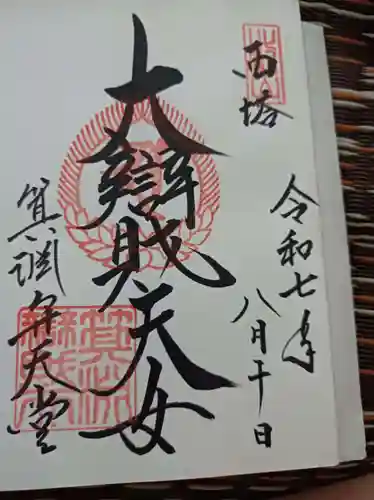 西塔
令和七年
八月十日
大辯財天女
箕淵弁天堂